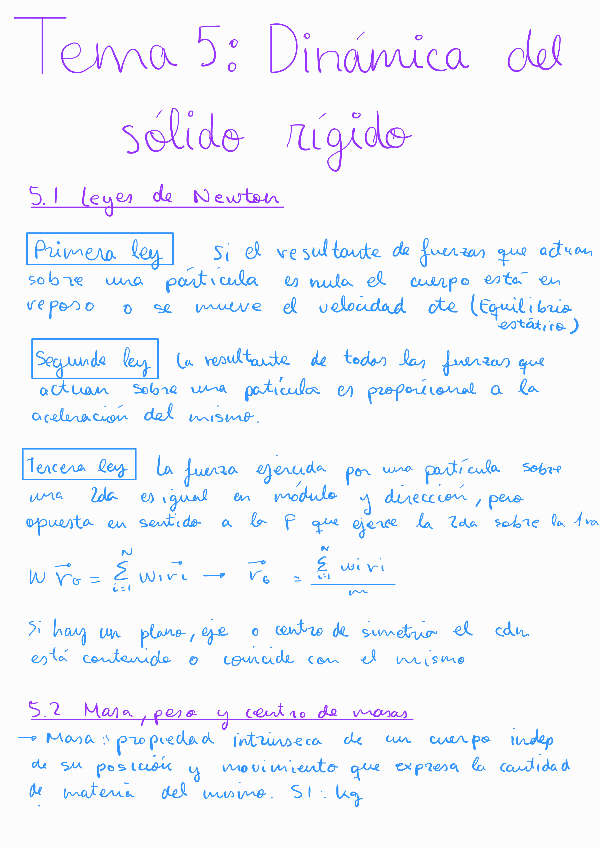 Tema 5: Dinámica del
sólido rígido
5.1 Leyes de Newton
Primera ley Si el resultante de fuerzas que actuan
sobre una párticula es nula el cuerpo está en
reposo o se mueve el velocidad cte (Equilibrio
estático)
Segunda ley La resultante de todas las fuerzas que
actuan sobre una patícula es proporcional a la
aceleración del mismo.
Tercera ley La fuerza ejercida por una partícula sobre
una 2da es igual en módulo y dirección, pero
opuesta en sentido a la F que ejerce la 2da sobre la 1ra
W r⃗G = Σ(i=1, N) wi r⃗i → r⃗G = Σ(i=1, N) wi ri / m
Si hay un plano, eje o centro de simetría el cdm
está contenido o coincide con el mismo
5.2 Masa, peso y centro de masas
→ Masa: propiedad intrínseca de un cuerpo indep
de su posición y movimiento que expresa la cantidad
de materia del mismo. SI: kg